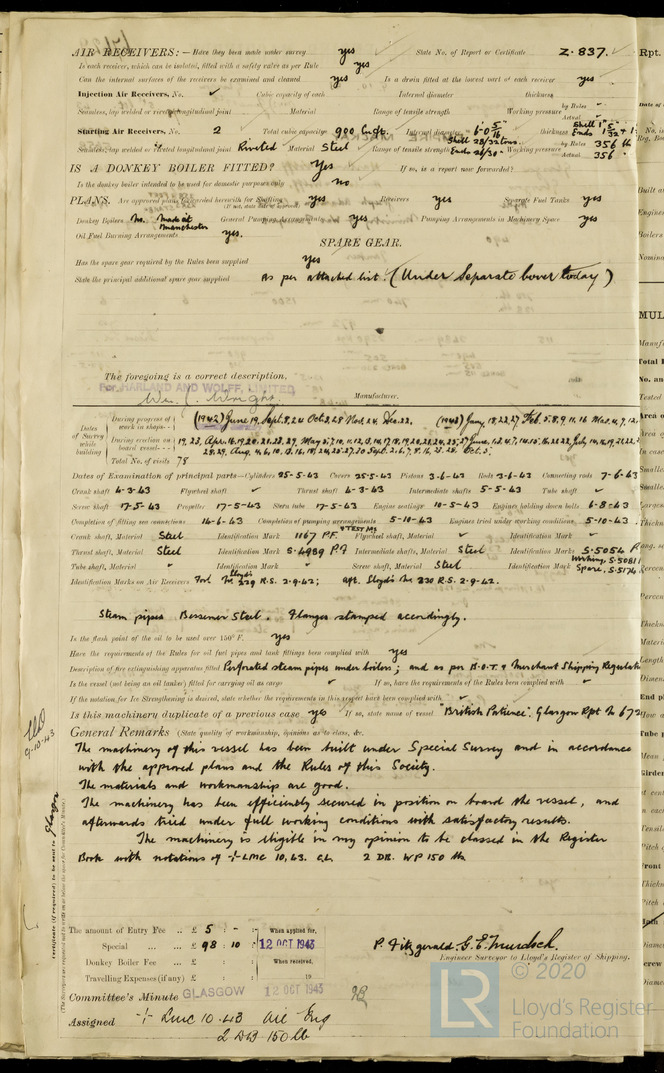 AIR RECEIVERS:— Have they been made under survey yes State No. of Report or Certificate Z. 837.
Is each receiver, which can be isolated, fitted with a safety valve as per Rule yes
Can the internal surfaces of the receivers be examined and cleaned yes Is a drain fitted at the lowest part of each receiver yes
Injection Air Receivers, No. Cubic capacity of each Internal diameter thickness
Seamless, lap welded or riveted longitudinal joint Material Range of tensile strength Working pressure by Rules Actual
Starting Air Receivers, No. 2 Total cubic capacity 900 Cu.ft. Internal diameter 6'0 5/16 thickness Shell 1" Ends
Seamless, lap welded or riveted longitudinal joint Riveted Material Steel Range of tensile strength Shell 28/32 tons. Ends 26/30" Working pressure by Rules 356 lb Actual 356
IS A DONKEY BOILER FITTED? Yes If so, is a report now forwarded?
Is the donkey boiler intended to be used for domestic purposes only no
PLANS. Are approved plans forwarded herewith for Shafting yes Receivers yes Separate Fuel Tanks yes
Donkey Boilers No. Made at Manchester General Pumping Arrangements yes Pumping Arrangements in Machinery Space yes
Oil Fuel Burning Arrangements yes.
SPARE GEAR.
Has the spare gear required by the Rules been supplied yes
State the principal additional spare gear supplied As per attached list. (Under Separate Cover today)
The foregoing is a correct description,
For HARLAND AND WOLFF, LIMITED
Manufacturer.
Dates of Survey while building
During progress of work in shops-- (1942) June 19, Sept. 8, 24 Oct. 2, 28 Nov. 24, Dec. 22. (1943) Jany. 18, 22, 27 Feb. 5, 8, 9, 11, 16 Mar. 4, 9, 12,
During erection on board vessel--- 19, 23, Apr. 16, 19, 20, 21, 28, 29, May 5, 7, 10, 11, 12, 13, 14, 17, 18, 19, 20, 21, 24, 25, 27 June, 1, 3, 4, 7, 14, 15, 16, 22, 28, July 14, 16, 19, 21, 22
28, 29, Aug. 4, 6, 10, 13, 16, 18, 24, 25, 27, 30 Sept. 2, 6, 7, 8, 16, 23, 28. Oct. 5.
Total No. of visits 78
Dates of Examination of principal parts—Cylinders 25-5-43 Covers 25-5-43 Pistons 3-6-43 Rods 3-6-43 Connecting rods 7-6-43
Crank shaft 4-3-43 Flywheel shaft Thrust shaft 4-3-43 Intermediate shafts 5-5-43 Tube shaft
Screw shaft 17-5-43 Propeller 17-5-43 Stern tube 17-5-43 Engine seatings 10-5-43 Engines holding down bolts 6-8-43
Completion of fitting sea connections 14-6-43 Completion of pumping arrangements 5-10-43 Engines tried under working conditions 5-10-43
Crank shaft, Material Steel Identification Mark 1167 P.F. Flywheel shaft, Material Identification Mark
Thrust shaft, Material Steel Identification Mark S.4989 P.F Intermediate shafts, Material Steel Identification Marks S.5054
Tube shaft, Material Identification Mark Screw shaft, Material Steel Identification Mark Working, S.5081 Spare, S.5174
Identification Marks on Air Receivers Ford. Lloyd's No 329 R.S. 2-9-42; aft. Lloyd's No 330 R.S. 2-9-42.
Steam pipes Bessemer Steel. Flanges stamped accordingly.
Is the flash point of the oil to be used over 150° F. yes
Have the requirements of the Rules for oil fuel pipes and tank fittings been complied with yes
Description of fire extinguishing apparatus fitted Perforated steam pipes under boilers; and as per B.O.T. & Merchant Shipping Regulati
Is the vessel (not being an oil tanker) fitted for carrying oil as cargo If so, have the requirements of the Rules been complied with
If the notation for Ice Strengthening is desired, state whether the requirements in this respect have been complied with
Is this machinery duplicate of a previous case yes If so, state name of vessel "British Patience". Glasgow Rpt No 672
General Remarks (State quality of workmanship, opinions as to class, &c.
The machinery of this vessel has been built under Special Survey and in accordance
with the approved plans and the Rules of this Society.
The materials and workmanship are good.
The machinery has been efficiently secured in position on board the vessel, and
afterwards tried under full working conditions with satisfactory results.
The machinery is eligible in my opinion to be classed in the Register
Book with notations of + LMC 10,43. CL. 2 DB. WP 150 lb.
9-10-43
Glasgow
Certificate (if required) to be sent to
(The Surveyors are requested not to write on or below the space for Committee's Minute.)
The amount of Entry Fee .. £ 5 : - : When applied for,
Special ... ... £ 98 : 10 : 12 OCT 1943
Donkey Boiler Fee ... £ : : When received,
Travelling Expenses (if any) £ : : 19
P. Fitzgerald. G. E. Murdoch.
Engineer Surveyor to Lloyd's Register of Shipping.
Committee's Minute GLASGOW 12 OCT 1943
Assigned + LMC 10.43 Oil Eng
2 DB 150 lb
LR © 2020
Lloyd's Register
Foundation
Rpt.
MUL